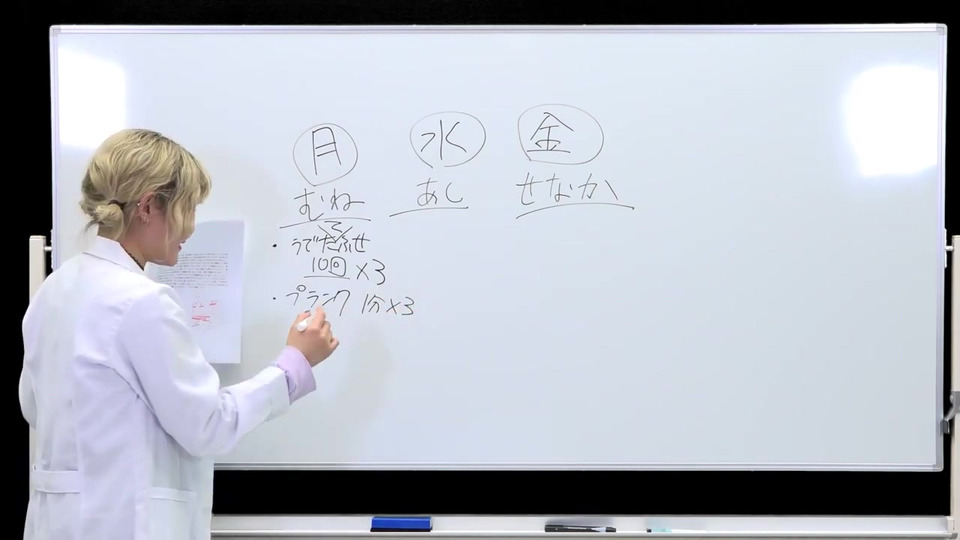 月 水 金
むね あし せなか
・うでたふせ
10回×3
・プランク 1分×3